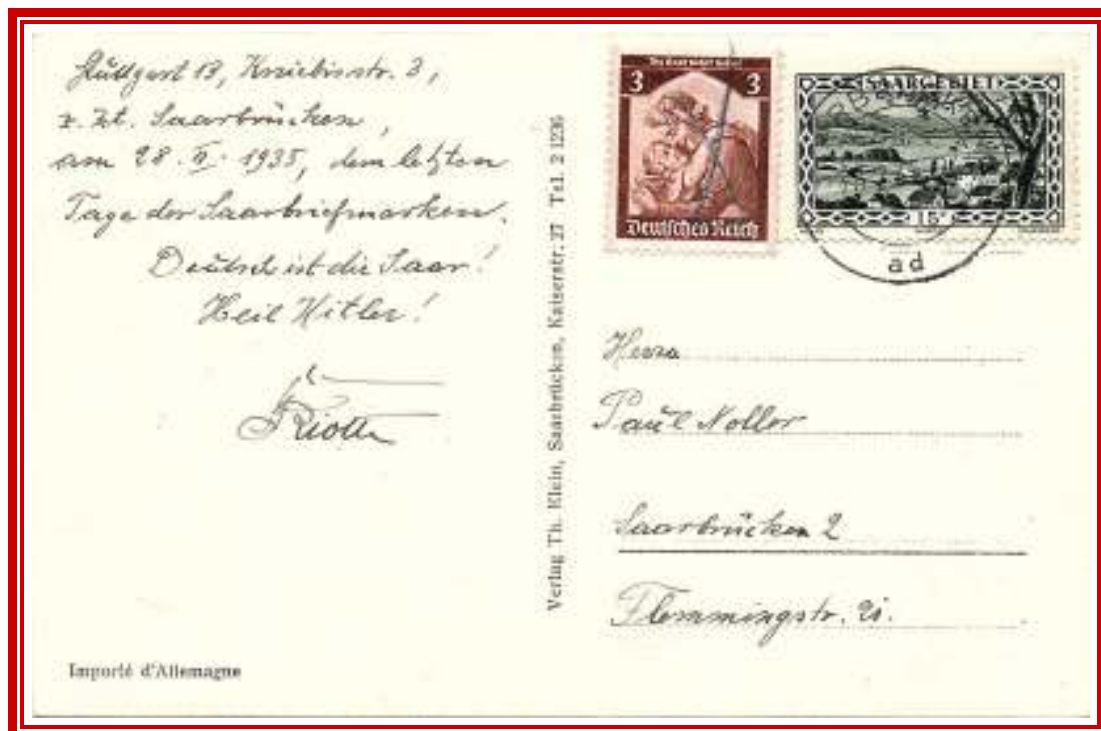 Stuttgart 13, Kniebisstr. 3,
z. Zt. Saarbrücken,
am 28. II. 1935, dem letzten
Tage der Saarbriefmarken.
Deutsch ist die Saar!
Heil Hitler!
Importé d'Allemagne
Verlag Th. Klein, Saarbrücken, Kaiserstr. 27 Tel. 2 1236
3 3
Deutsches Reich
SAARGEBIET
15
ad
Herrn
Paul Noller
Saarbrücken 2
Flemmingstr. 21.